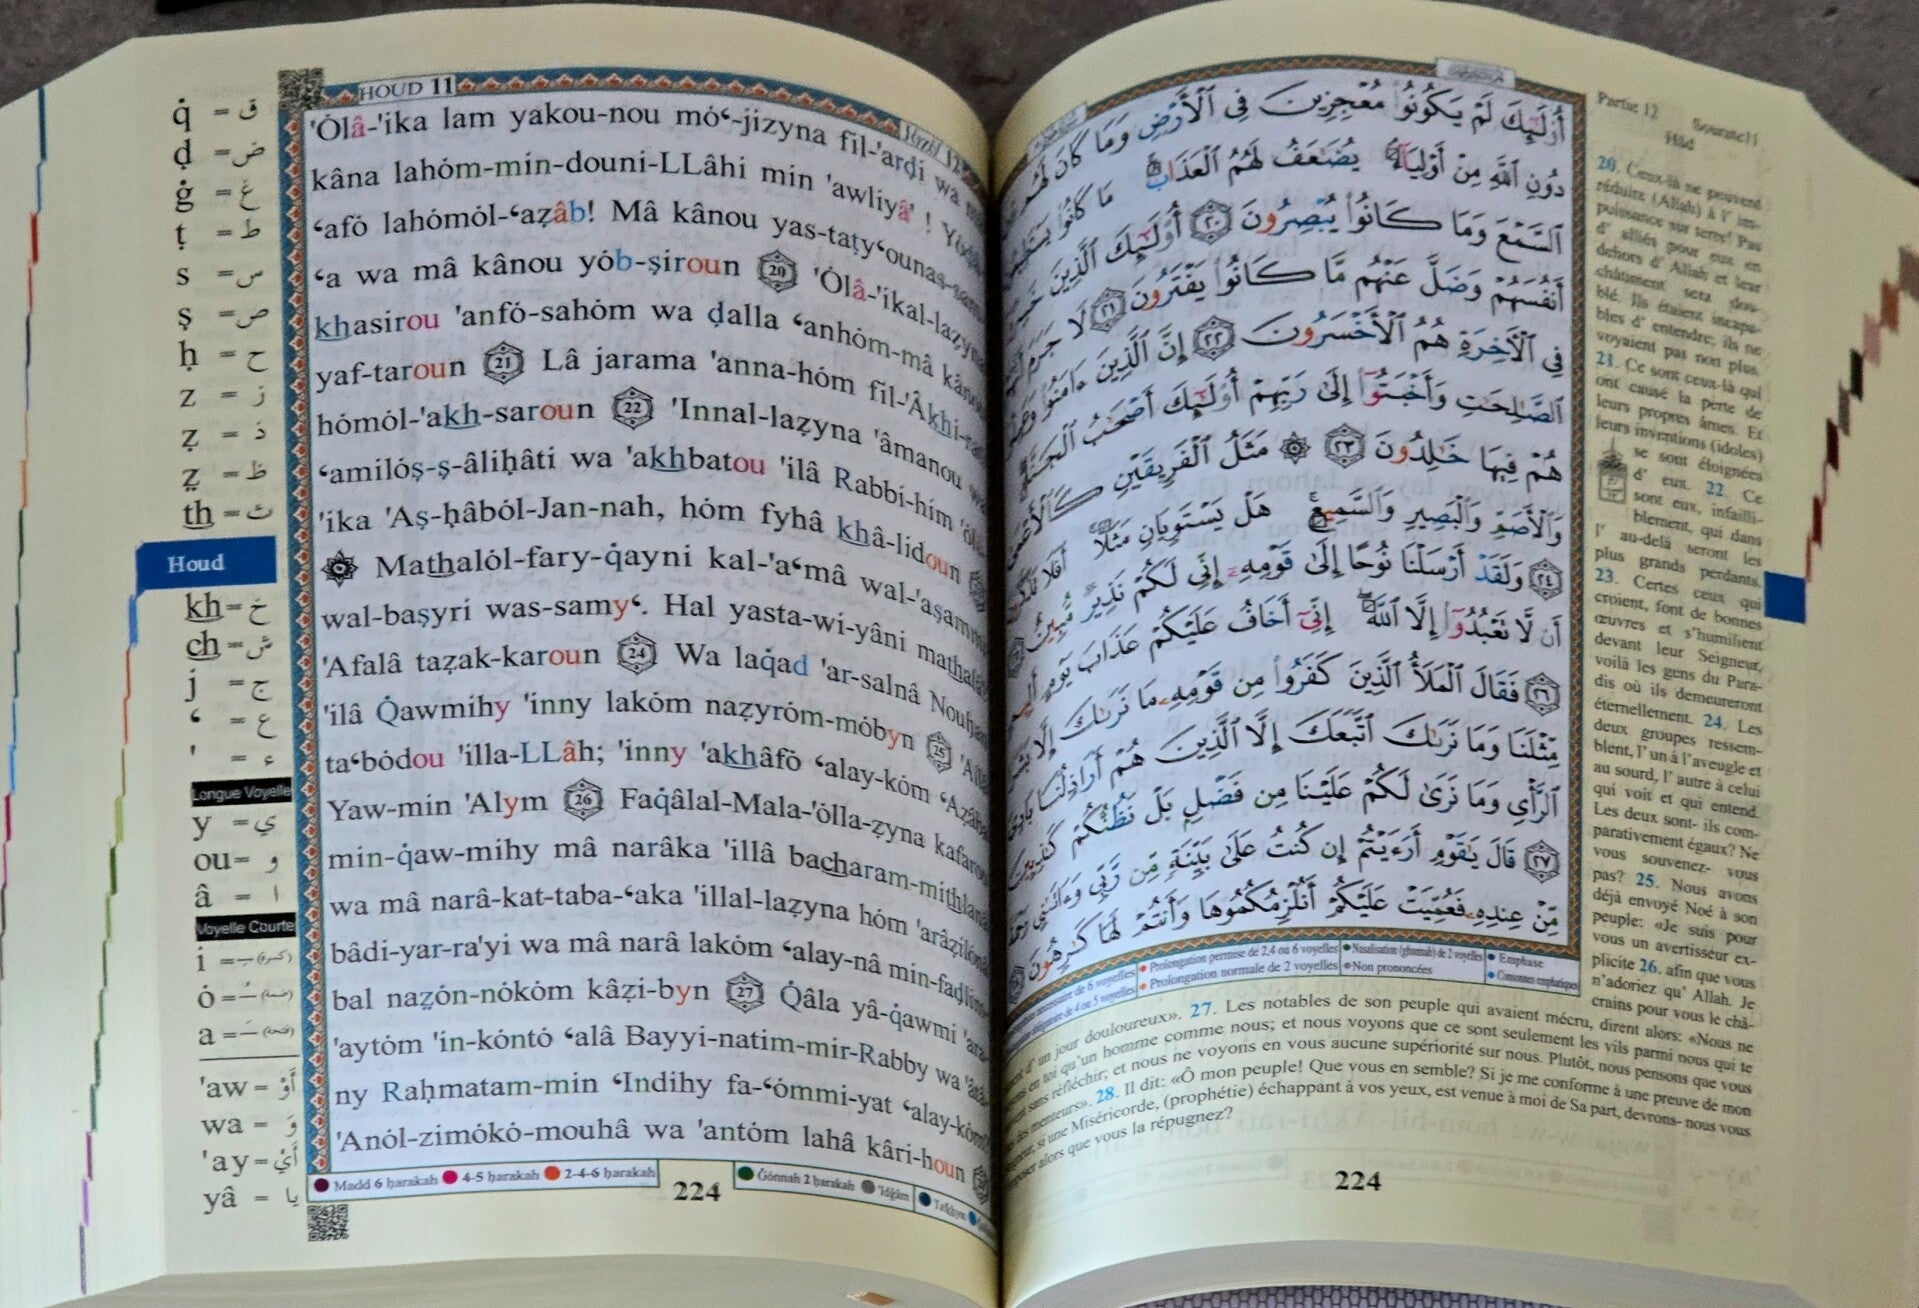 q̇ = ق
ḍ = ض
ġ = غ
ṭ = ط
s = س
ṣ = ص
ḥ = ح
z = ز
ẓ = ذ
ẓ̤ = ظ
th = ث
Houd
kh = خ
ch = ش
j = ج
ʻ = ع
' = ء
Longue Voyelle
y = ي
ou = و
â = ا
Voyelle Courte
i = ـِ (كسرة)
ȯ = ـُ (ضمة)
a = ـَ (فتحة)
'aw = أَوْ
wa = وَ
'ay = أَيْ
yâ = يا
HOUD 11
'Ȯlâ-'ika lam yakou-nou mȯʻ-jizyna fil-'arḍi wa
kâna lahȯm-min-douni-LLâhi min 'awliyâ' !
ʻafȯ lahȯmȯl-ʻaẓâb! Mâ kânou yas-taṭyʻounas-
ʻa wa mâ kânou yȯb-ṣiroun 20 'Ȯlâ-'ikal-laẓyna
khasirou 'anfȯ-sahȯm wa ḍalla ʻanhȯm-mâ kânou
yaf-taroun 21 Lâ jarama 'anna-hȯm fil-'Âkhi-
hȯmȯl-'akh-saroun 22 'Innal-laẓyna 'âmanou
ʻamilȯṣ-ṣ-âliḥâti wa 'akhbatou 'ilâ Rabbi-him
'ika 'Aṣ-ḥâbȯl-Jan-nah, hȯm fyhâ khâ-lidoun
Mathalȯl-fary-q̇ayni kal-'aʻmâ wal-'aṣammi
wal-baṣyri was-samyʻ. Hal yasta-wi-yâni mathalâ
'Afalâ taẓak-karoun 24 Wa laq̇ad 'ar-salnâ Nouḥan
'ilâ Q̇awmihy 'inny lakȯm naẓyrȯm-mȯbyn 25
taʻbȯdou 'illa-LLâh; 'inny 'akhâfȯ ʻalay-kȯm ʻAẓâba
Yaw-min 'Alym 26 Faq̇âlal-Mala-'ȯlla-ẓyna kafarou
min-q̇aw-mihy mâ narâka 'illâ bacharam-mithlanâ
wa mâ narâ-kat-taba-ʻaka 'illal-laẓyna hȯm 'arâẓilȯnâ
bâdi-yar-ra'yi wa mâ narâ lakȯm ʻalay-nâ min-faḍlim-
bal naẓ̤ȯn-nȯkȯm kâẓi-byn 27 Q̇âla yâ-q̇awmi 'ara-
'aytȯm 'in-kȯntȯ ʻalâ Bayyi-natim-mir-Rabby wa
ny Raḥmatam-min ʻIndihy fa-ʻȯmmi-yat ʻalay-kȯm
'Anȯl-zimȯkȯ-mouhâ wa 'antȯm lahâ kâri-houn
Madd 6 ḥarakah 4-5 ḥarakah 2-4-6 ḥarakah
Ġȯnnah 2 ḥarakah 'Idġâm Tafkhym
224
أُو۟لَـٰٓئِكَ لَمْ يَكُونُوا۟ مُعْجِزِينَ فِى ٱلْأَرْضِ وَمَا كَانَ لَهُم
دُونِ ٱللَّهِ مِنْ أَوْلِيَآءَ ۘ يُضَـٰعَفُ لَهُمُ ٱلْعَذَابُ ۚ مَا كَانُوا۟ يَسْتَطِيعُونَ
ٱلسَّمْعَ وَمَا كَانُوا۟ يُبْصِرُونَ ٢٠ أُو۟لَـٰٓئِكَ ٱلَّذِينَ خَسِرُوٓا۟
أَنفُسَهُمْ وَضَلَّ عَنْهُم مَّا كَانُوا۟ يَفْتَرُونَ ٢١ لَا جَرَمَ أَنَّهُمْ
فِى ٱلْـَٔاخِرَةِ هُمُ ٱلْأَخْسَرُونَ ٢٢ إِنَّ ٱلَّذِينَ ءَامَنُوا۟ وَعَمِلُوا۟
ٱلصَّـٰلِحَـٰتِ وَأَخْبَتُوٓا۟ إِلَىٰ رَبِّهِمْ أُو۟لَـٰٓئِكَ أَصْحَـٰبُ ٱلْجَنَّةِ ۖ
هُمْ فِيهَا خَـٰلِدُونَ ٢٣ ۞ مَثَلُ ٱلْفَرِيقَيْنِ كَٱلْأَعْمَىٰ
وَٱلْأَصَمِّ وَٱلْبَصِيرِ وَٱلسَّمِيعِ ۚ هَلْ يَسْتَوِيَانِ مَثَلًا ۚ أَفَلَا تَذَكَّرُونَ
٢٤ وَلَقَدْ أَرْسَلْنَا نُوحًا إِلَىٰ قَوْمِهِۦٓ إِنِّى لَكُمْ نَذِيرٌ مُّبِينٌ
أَن لَّا تَعْبُدُوٓا۟ إِلَّا ٱللَّهَ ۖ إِنِّىٓ أَخَافُ عَلَيْكُمْ عَذَابَ يَوْمٍ أَلِيمٍ
٢٦ فَقَالَ ٱلْمَلَأُ ٱلَّذِينَ كَفَرُوا۟ مِن قَوْمِهِۦ مَا نَرَىٰكَ إِلَّا بَشَرًا
مِّثْلَنَا وَمَا نَرَىٰكَ ٱتَّبَعَكَ إِلَّا ٱلَّذِينَ هُمْ أَرَاذِلُنَا بَادِىَ
ٱلرَّأْىِ وَمَا نَرَىٰ لَكُمْ عَلَيْنَا مِن فَضْلٍۭ بَلْ نَظُنُّكُمْ كَـٰذِبِينَ
٢٧ قَالَ يَـٰقَوْمِ أَرَءَيْتُمْ إِن كُنتُ عَلَىٰ بَيِّنَةٍ مِّن رَّبِّى وَءَاتَىٰنِى رَحْمَةً
مِّنْ عِندِهِۦ فَعُمِّيَتْ عَلَيْكُمْ أَنُلْزِمُكُمُوهَا وَأَنتُمْ لَهَا كَـٰرِهُونَ
Prolongation permise de 2,4 ou 6 voyelles Nasalisation (ghunnah) de 2 voyelles Emphase
Prolongation normale de 2 voyelles Non prononcées Consonnes emphatiques
Partie 12 Sourate11
Hûd
20. Ceux-là ne peuvent
réduire (Allah) à l' im-
puissance sur terre! Pas
d' alliés pour eux en
dehors d' Allah et leur
châtiment sera dou-
blé. Ils étaient incapa-
bles d' entendre; ils ne
voyaient pas non plus.
21. Ce sont ceux-là qui
ont causé la perte de
leurs propres âmes. Et
leurs inventions (idoles)
se sont éloignées
d' eux. 22. Ce
sont eux, infailli-
blement, qui dans
l' au-delà seront les
plus grands perdants.
23. Certes ceux qui
croient, font de bonnes
œuvres et s'humilient
devant leur Seigneur,
voilà les gens du Para-
dis où ils demeureront
éternellement. 24. Les
deux groupes ressem-
blent, l' un à l'aveugle et
au sourd, l' autre à celui
qui voit et qui entend.
Les deux sont- ils com-
parativement égaux? Ne
vous souvenez- vous
pas? 25. Nous avons
déjà envoyé Noé à son
peuple: «Je suis pour
vous un avertisseur ex-
plicite 26. afin que vous
n'adoriez qu' Allah. Je
crains pour vous le châ-
d' un jour douloureux». 27. Les notables de son peuple qui avaient mécru, dirent alors: «Nous ne
en toi qu'un homme comme nous; et nous voyons que ce sont seulement les vils parmi nous qui te
sans réfléchir; et nous ne voyons en vous aucune supériorité sur nous. Plutôt, nous pensons que vous
des menteurs». 28. Il dit: «Ô mon peuple! Que vous en semble? Si je me conforme à une preuve de mon
si une Miséricorde, (prophétie) échappant à vos yeux, est venue à moi de Sa part, devrons- nous vous
alors que vous la répugnez?
224